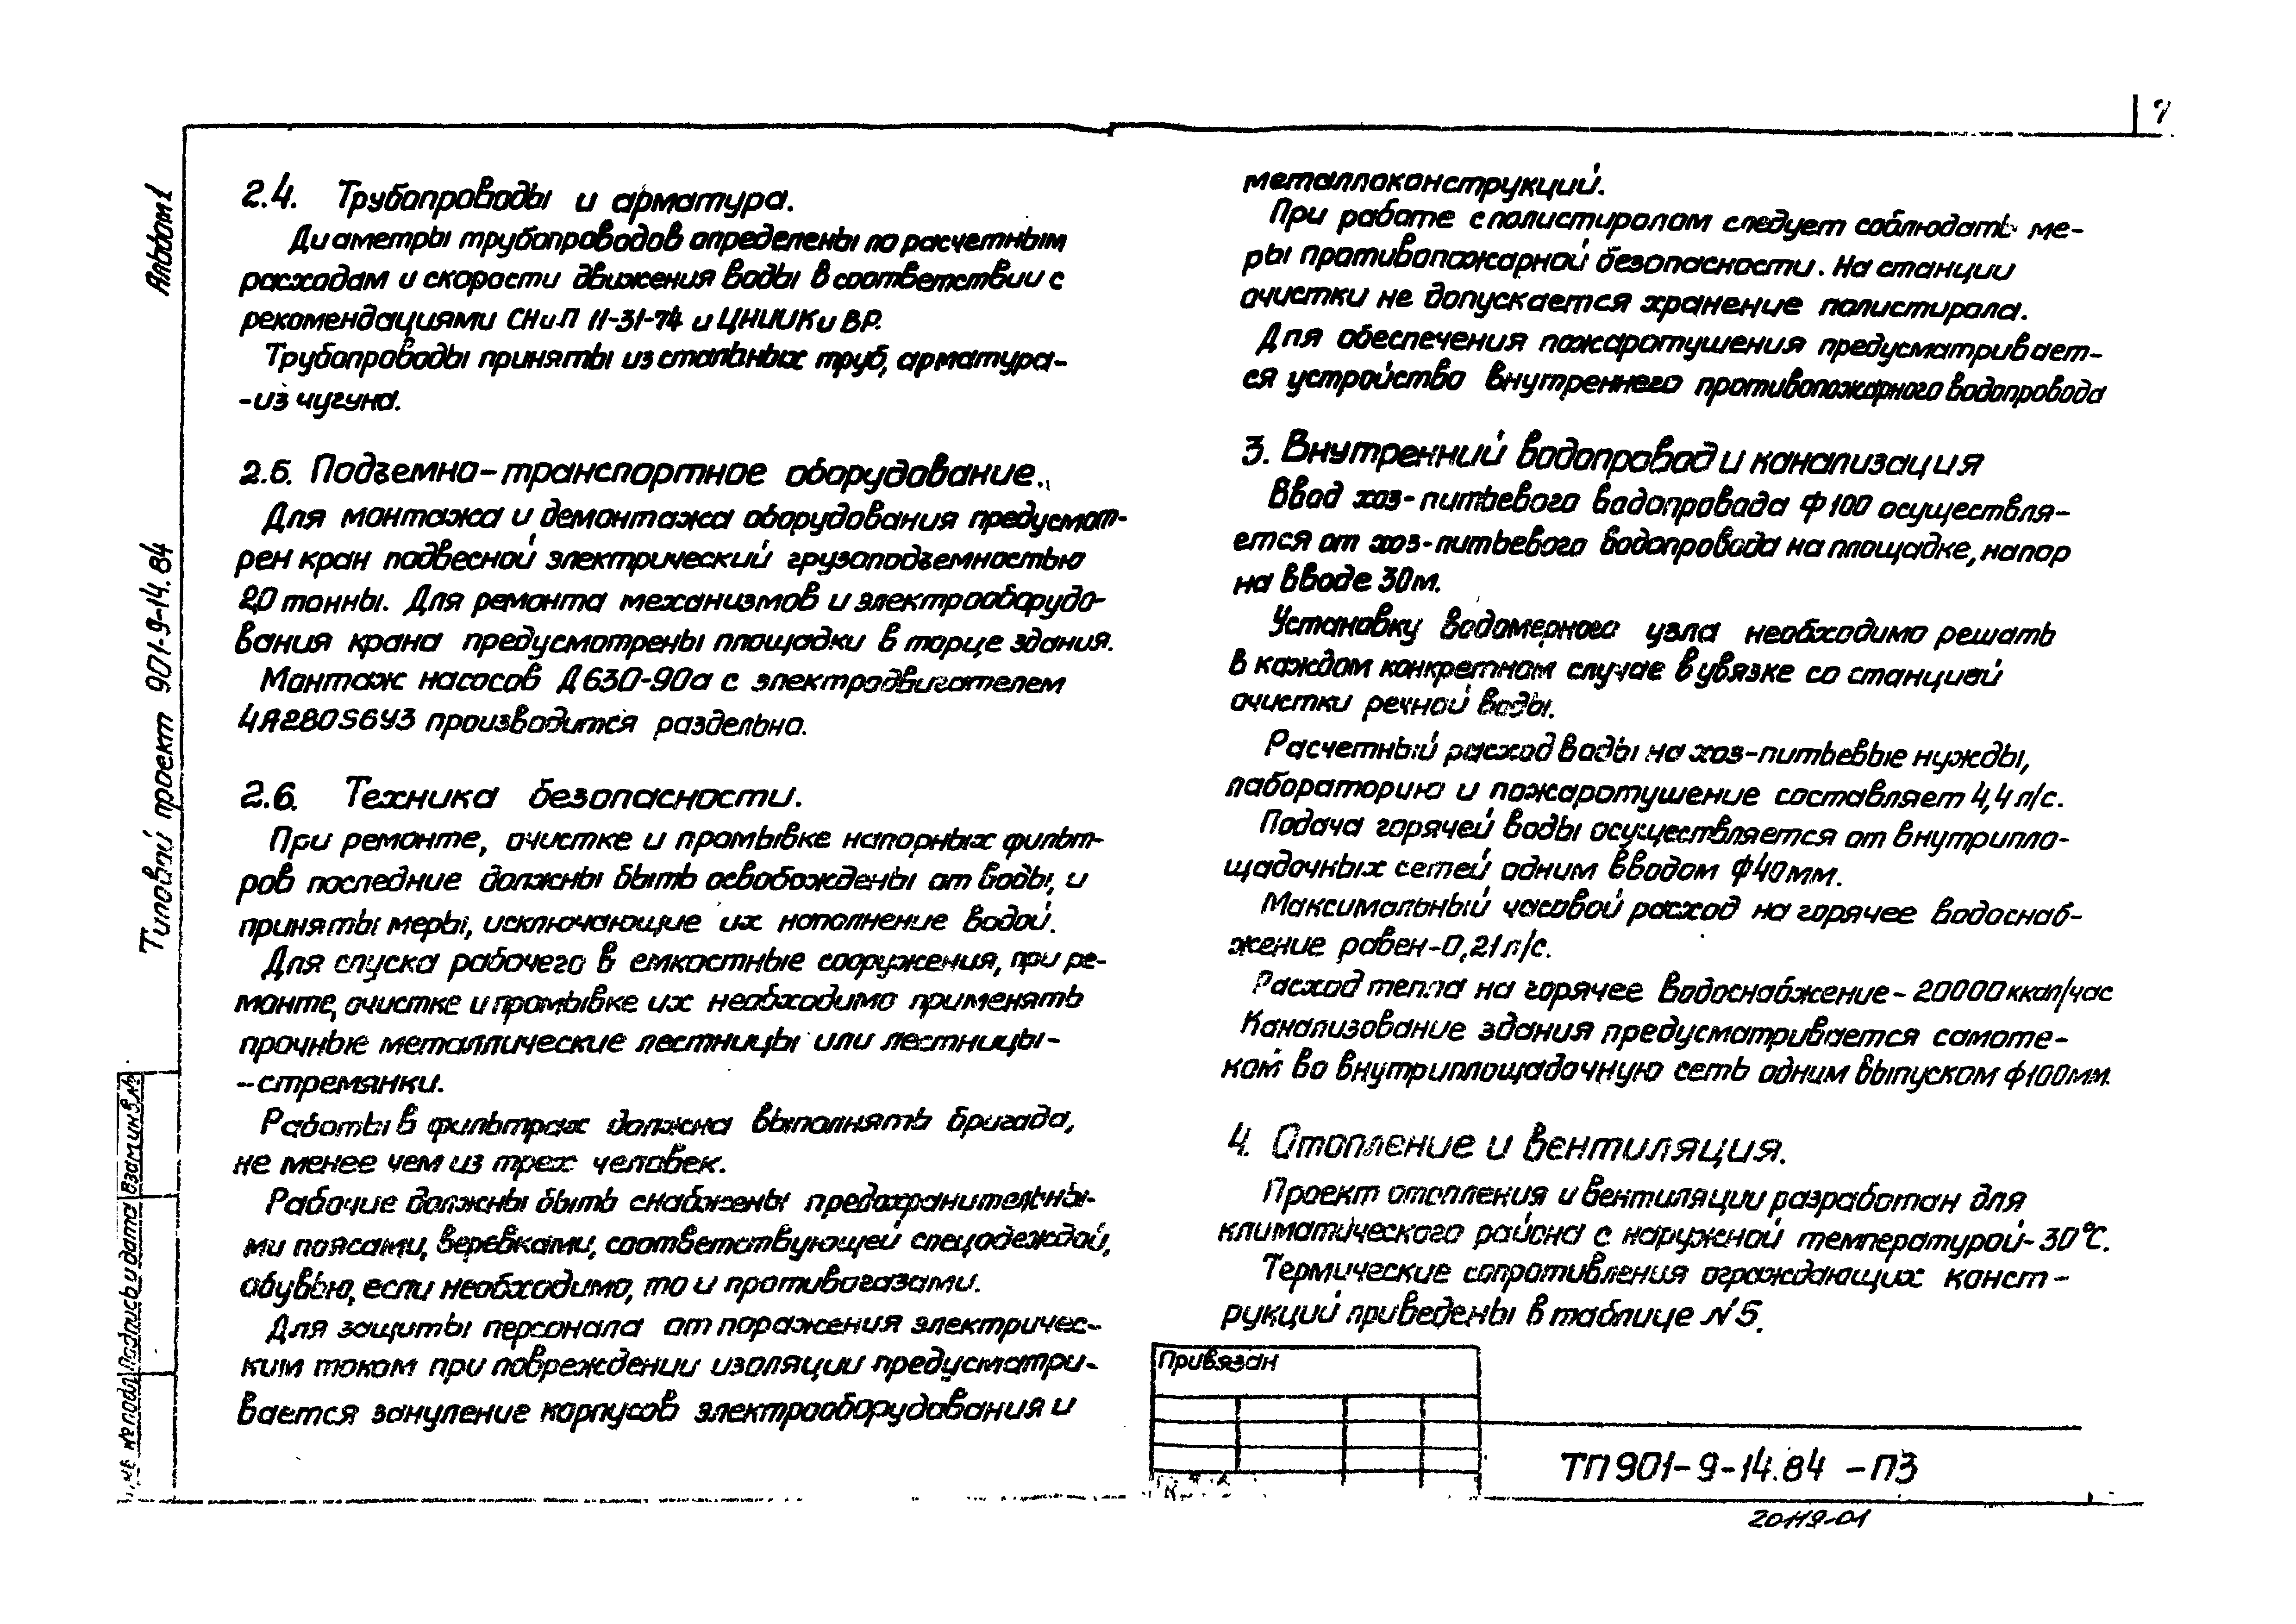 Альбом 1
Типовой проект 901-9-14.84
2.4. Трубопроводы и арматура.
Диаметры трубопроводов определены по расчетным
расходам и скорости движения воды в соответствии с
рекомендациями СНиП II-31-74 и ЦНИИКиВР.
Трубопроводы приняты из стальных труб, арматура-
-из чугуна.
2.5. Подъемно-транспортное оборудование.
Для монтажа и демонтажа оборудования предусмот-
рен кран подвесной электрический грузоподъемностью
2,0 тонны. Для ремонта механизмов и электрооборудо-
вания крана предусмотрены площадки в торце здания.
Монтаж насосов Д630-90а с электродвигателем
4А280S6У3 производится раздельно.
2.6. Техника безопасности.
При ремонте, очистке и промывке напорных фильт-
ров последние должны быть освобождены от воды, и
приняты меры, исключающие их наполнение водой.
Для спуска рабочего в емкостные сооружения, при ре-
монте, очистке и промывке их необходимо применять
прочные металлические лестницы или лестницы-
-стремянки.
Работы в фильтрах должна выполнять бригада,
не менее чем из трех человек.
Рабочие должны быть снабжены предохранительны-
ми поясами, веревками, соответствующей спецодеждой,
обувью, если необходимо, то и противогазами.
Для защиты персонала от поражения электричес-
ким током при повреждении изоляции предусматри-
вается зануление корпусов электрооборудования и
металлоконструкций.
При работе с полистиролом следует соблюдать ме-
ры противопожарной безопасности. На станции
очистки не допускается хранение полистирола.
Для обеспечения пожаротушения предусматривает-
ся устройство внутреннего противопожарного водопровода
3. Внутренний водопровод и канализация
Ввод хоз-питьевого водопровода ф100 осуществля-
ется от хоз-питьевого водопровода на площадке, напор
на вводе 30м.
Установку водомерного узла необходимо решать
в каждом конкретном случае в увязке со станцией
очистки речной воды.
Расчетный расход воды на хоз-питьевые нужды,
лабораторию и пожаротушение составляет 4,4 л/с.
Подача горячей воды осуществляется от внутрипло-
щадочных сетей одним вводом ф40мм.
Максимальный часовой расход на горячее водоснаб-
жение равен-0,21л/с.
Расход тепла на горячее водоснабжение-20000 ккал/час
Канализование здания предусматривается самоте-
ком во внутриплощадочную сеть одним выпуском ф100мм.
4. Отопление и вентиляция.
Проект отопления и вентиляции разработан для
климатического района с наружной температурой-30°С.
Термические сопротивления ограждающих конст-
рукций приведены в таблице №5.
Привязан
ТП 901-9-14.84 -ПЗ
20119-01
Инв. № подл. Подпись и дата Взам инв №